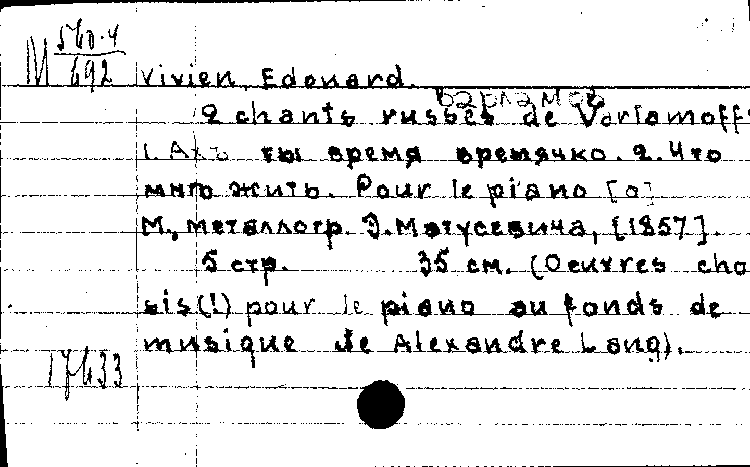 М 560-4
692
Vivien, Edouard.
Варламов
2 chants russes de Varlamoff:
1. Ахъ ты время времячко. 2. Что
мнѣ жить. Pour le piano [o]
М., металлогр. Э. Матусевича, [1857].
5 стр. 35 см. (Oeuvres cho
sis(!) pour le piano au fonds de
musique de Alexandre Lang).
17433